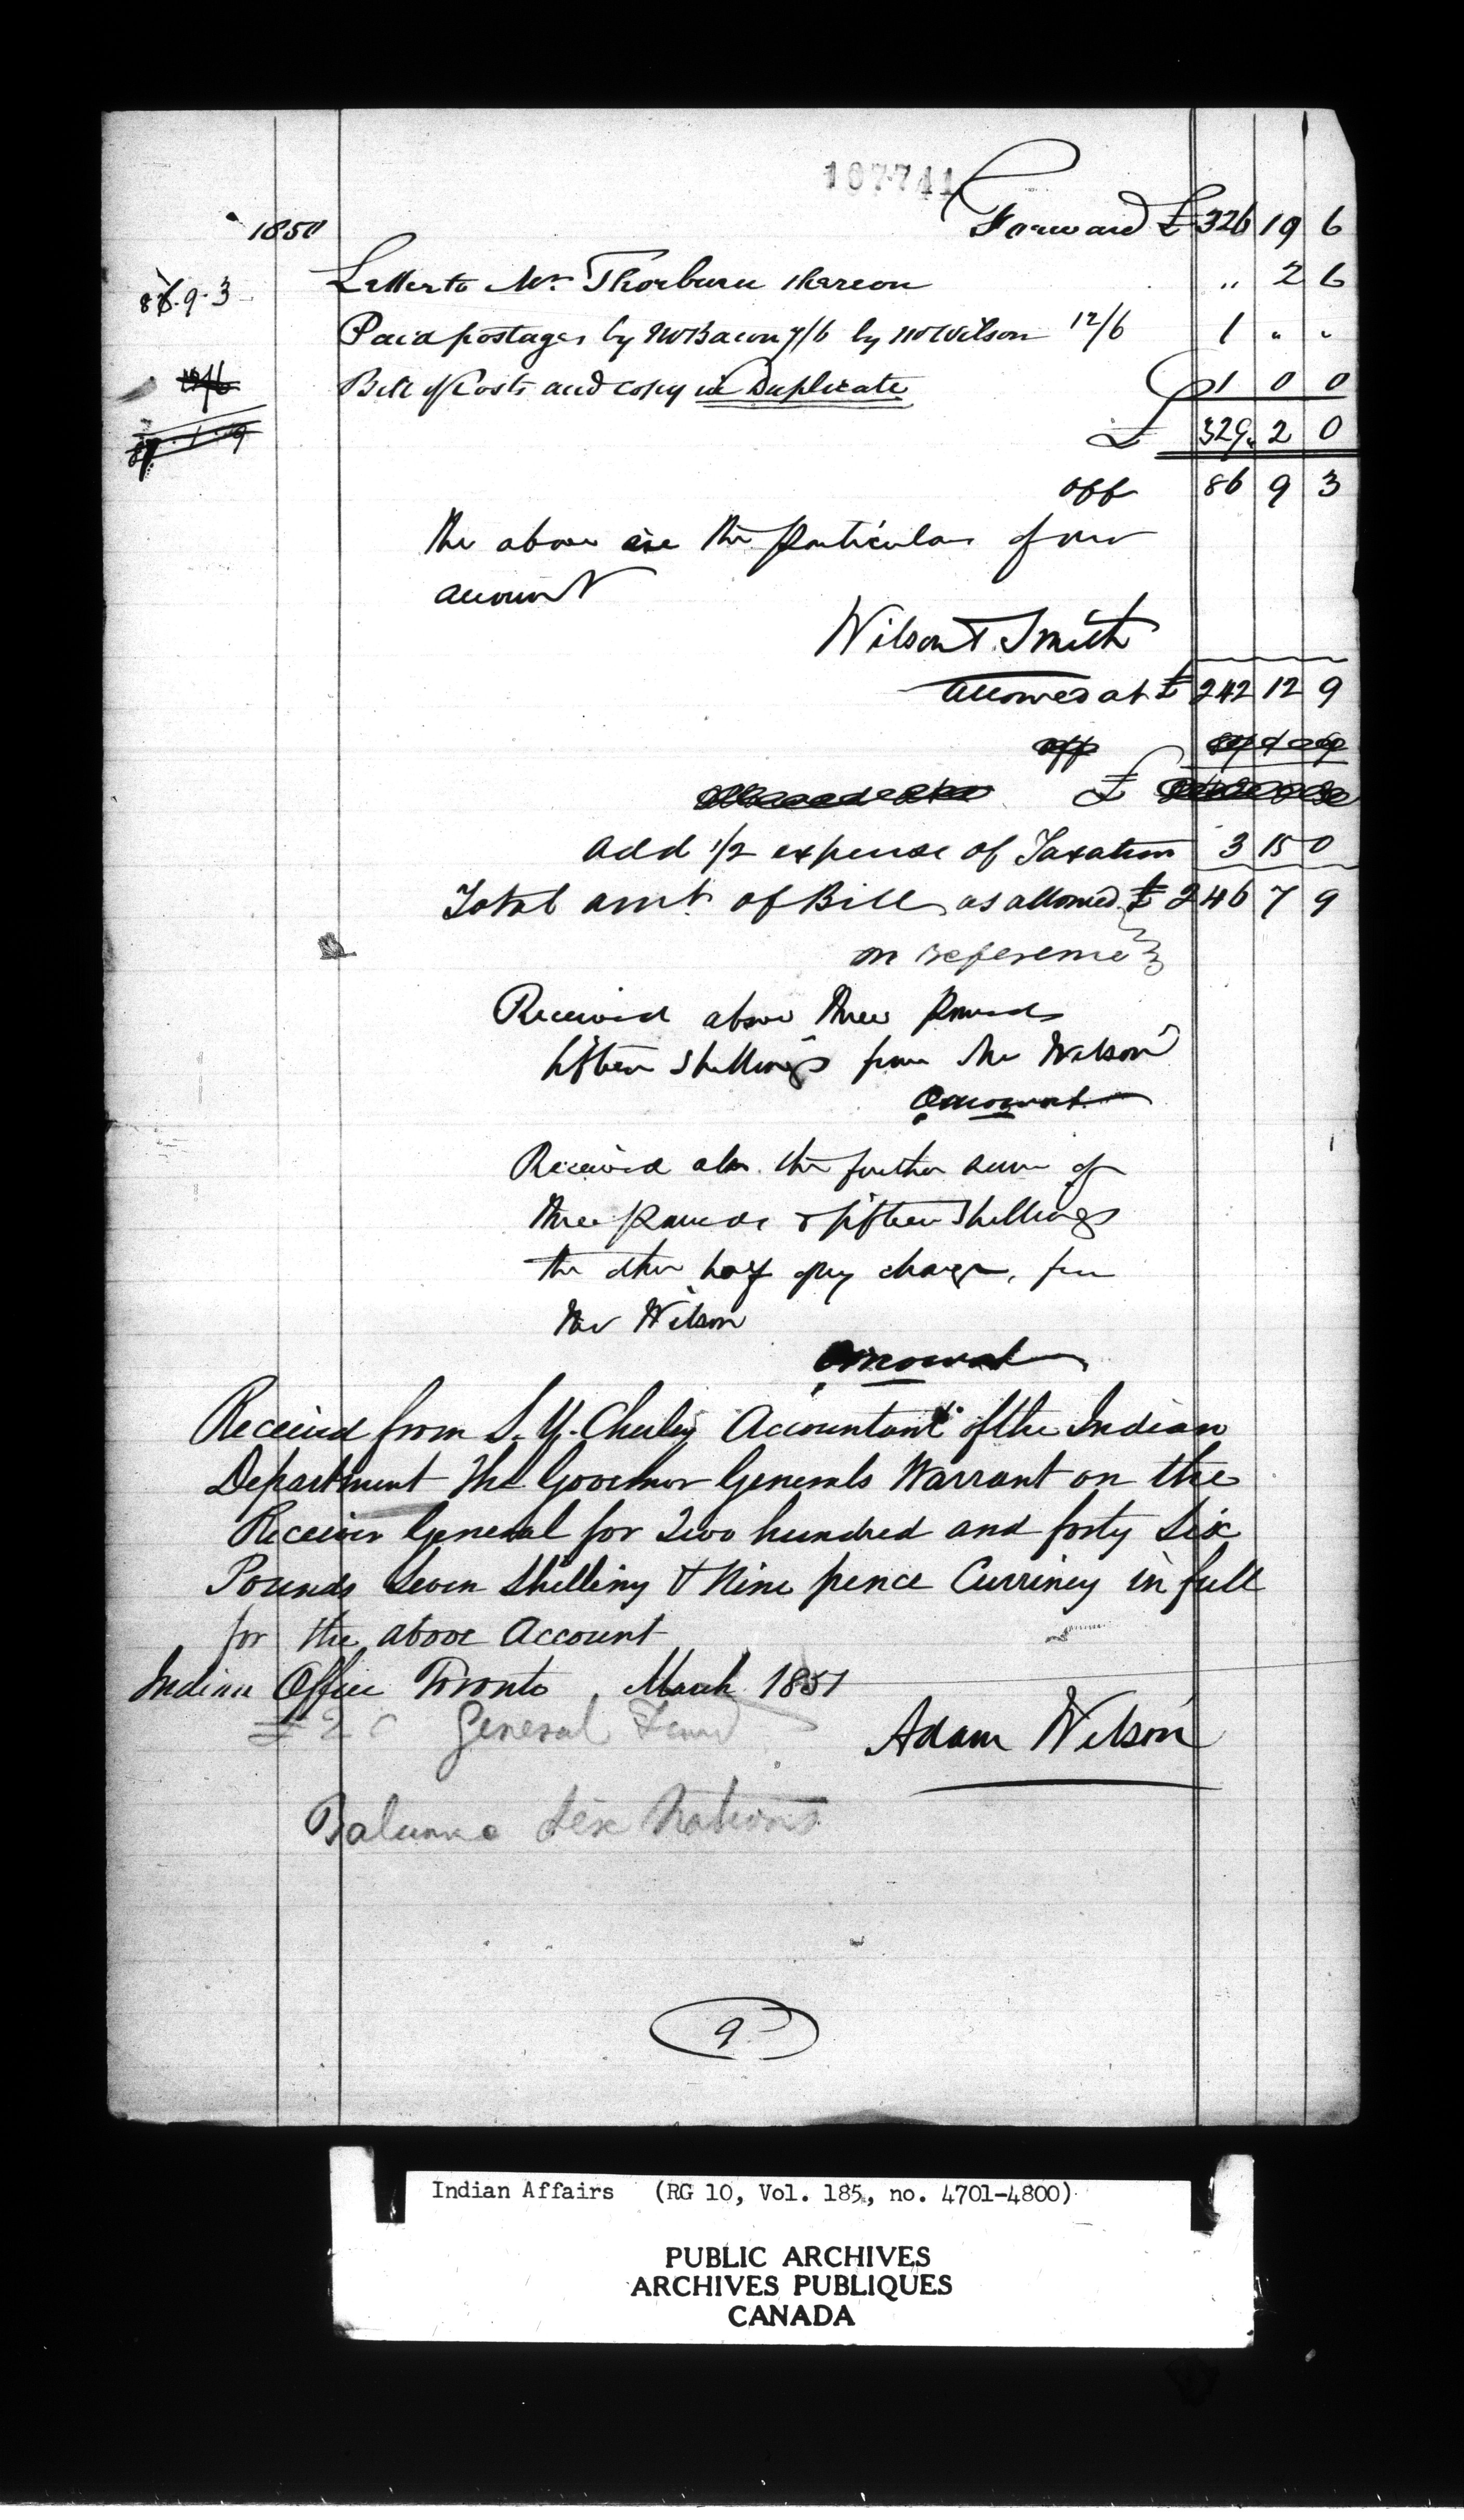 107741
Forward £ 326 19 6
1850
86.9.3 Letter to Mr. Thorburn thereon " 2 6
Paid postages by Mr Bacon 7/6 by Mr Wilson 12/6 1 " "
Bill of Costs and copy in Duplicate 1 0 0
£ 329. 2 0
87.1.9
off 86 9 3
The above are the particulars of our
account
Wilson & Smith
allowed at £ 242 12 9
off
£
add 1/2 expense of Taxation 3 15 0
Total amt. of Bill as allowed £ 246 7 9
on reference
Received above three pounds
fifteen shillings from Mr Wilson
O Mowat
Received also the further sum of
three pounds & fifteen shillings
the other half of my charge, from
Mr Wilson
O Mowat
Received from S. Y. Chesley Accountant of the Indian
Department The Governor Generals Warrant on the
Receiver General for Two hundred and forty Six
Pounds Seven Shilling & Nine pence Curriney in full
for the above Account
Indian Office Toronto March 1851
General Fund
Adam Wilson
Balance Six Nations
9
Indian Affairs (RG 10, Vol. 185, no. 4701-4800)
PUBLIC ARCHIVES
ARCHIVES PUBLIQUES
CANADA